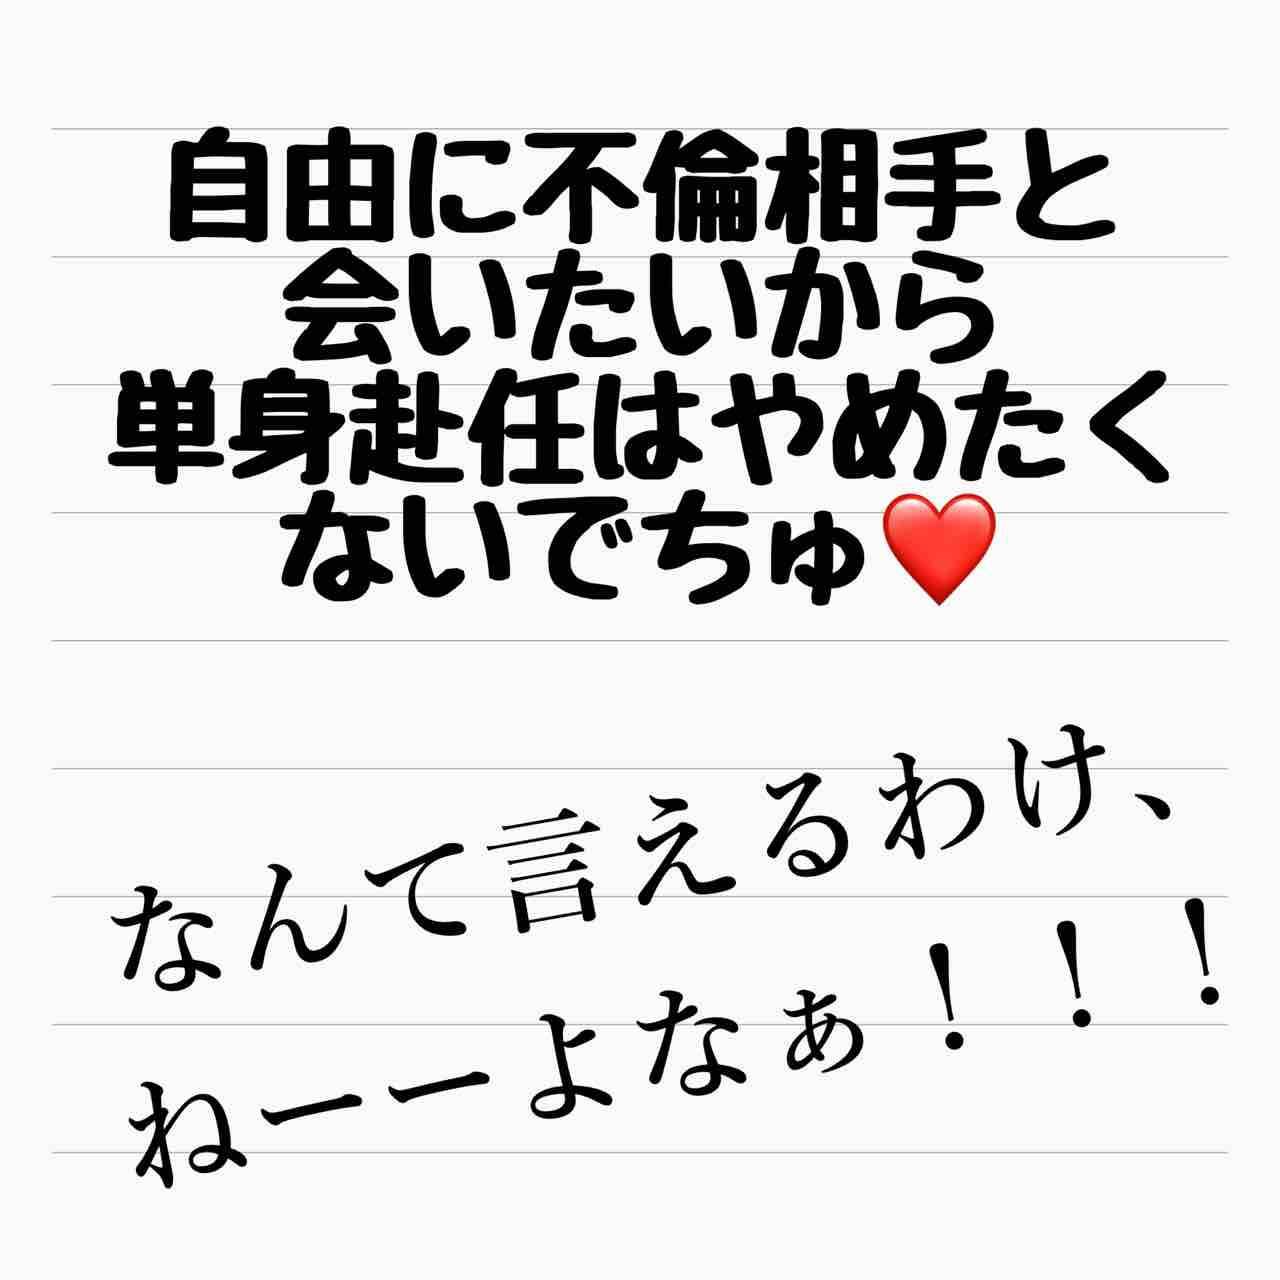 自由に不倫相手と
会いたいから
単身赴任はやめたく
ないでちゅ❤️
なんて言えるわけ、
ねーーよなぁ！！！